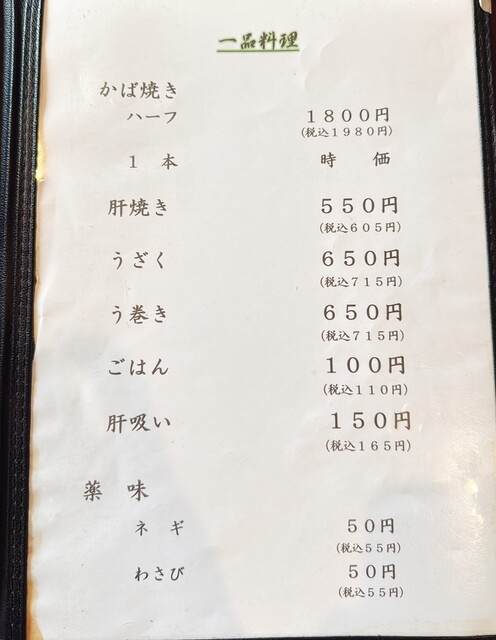 一品料理
かば焼き
ハーフ １８００円
（税込１９８０円）
１ 本 時 価
肝焼き ５５０円
（税込６０５円）
うざく ６５０円
（税込７１５円）
う巻き ６５０円
（税込７１５円）
ごはん １００円
（税込１１０円）
肝吸い １５０円
（税込１６５円）
薬 味
ネ ギ ５０円
（税込５５円）
わさび ５０円
（税込５５円）